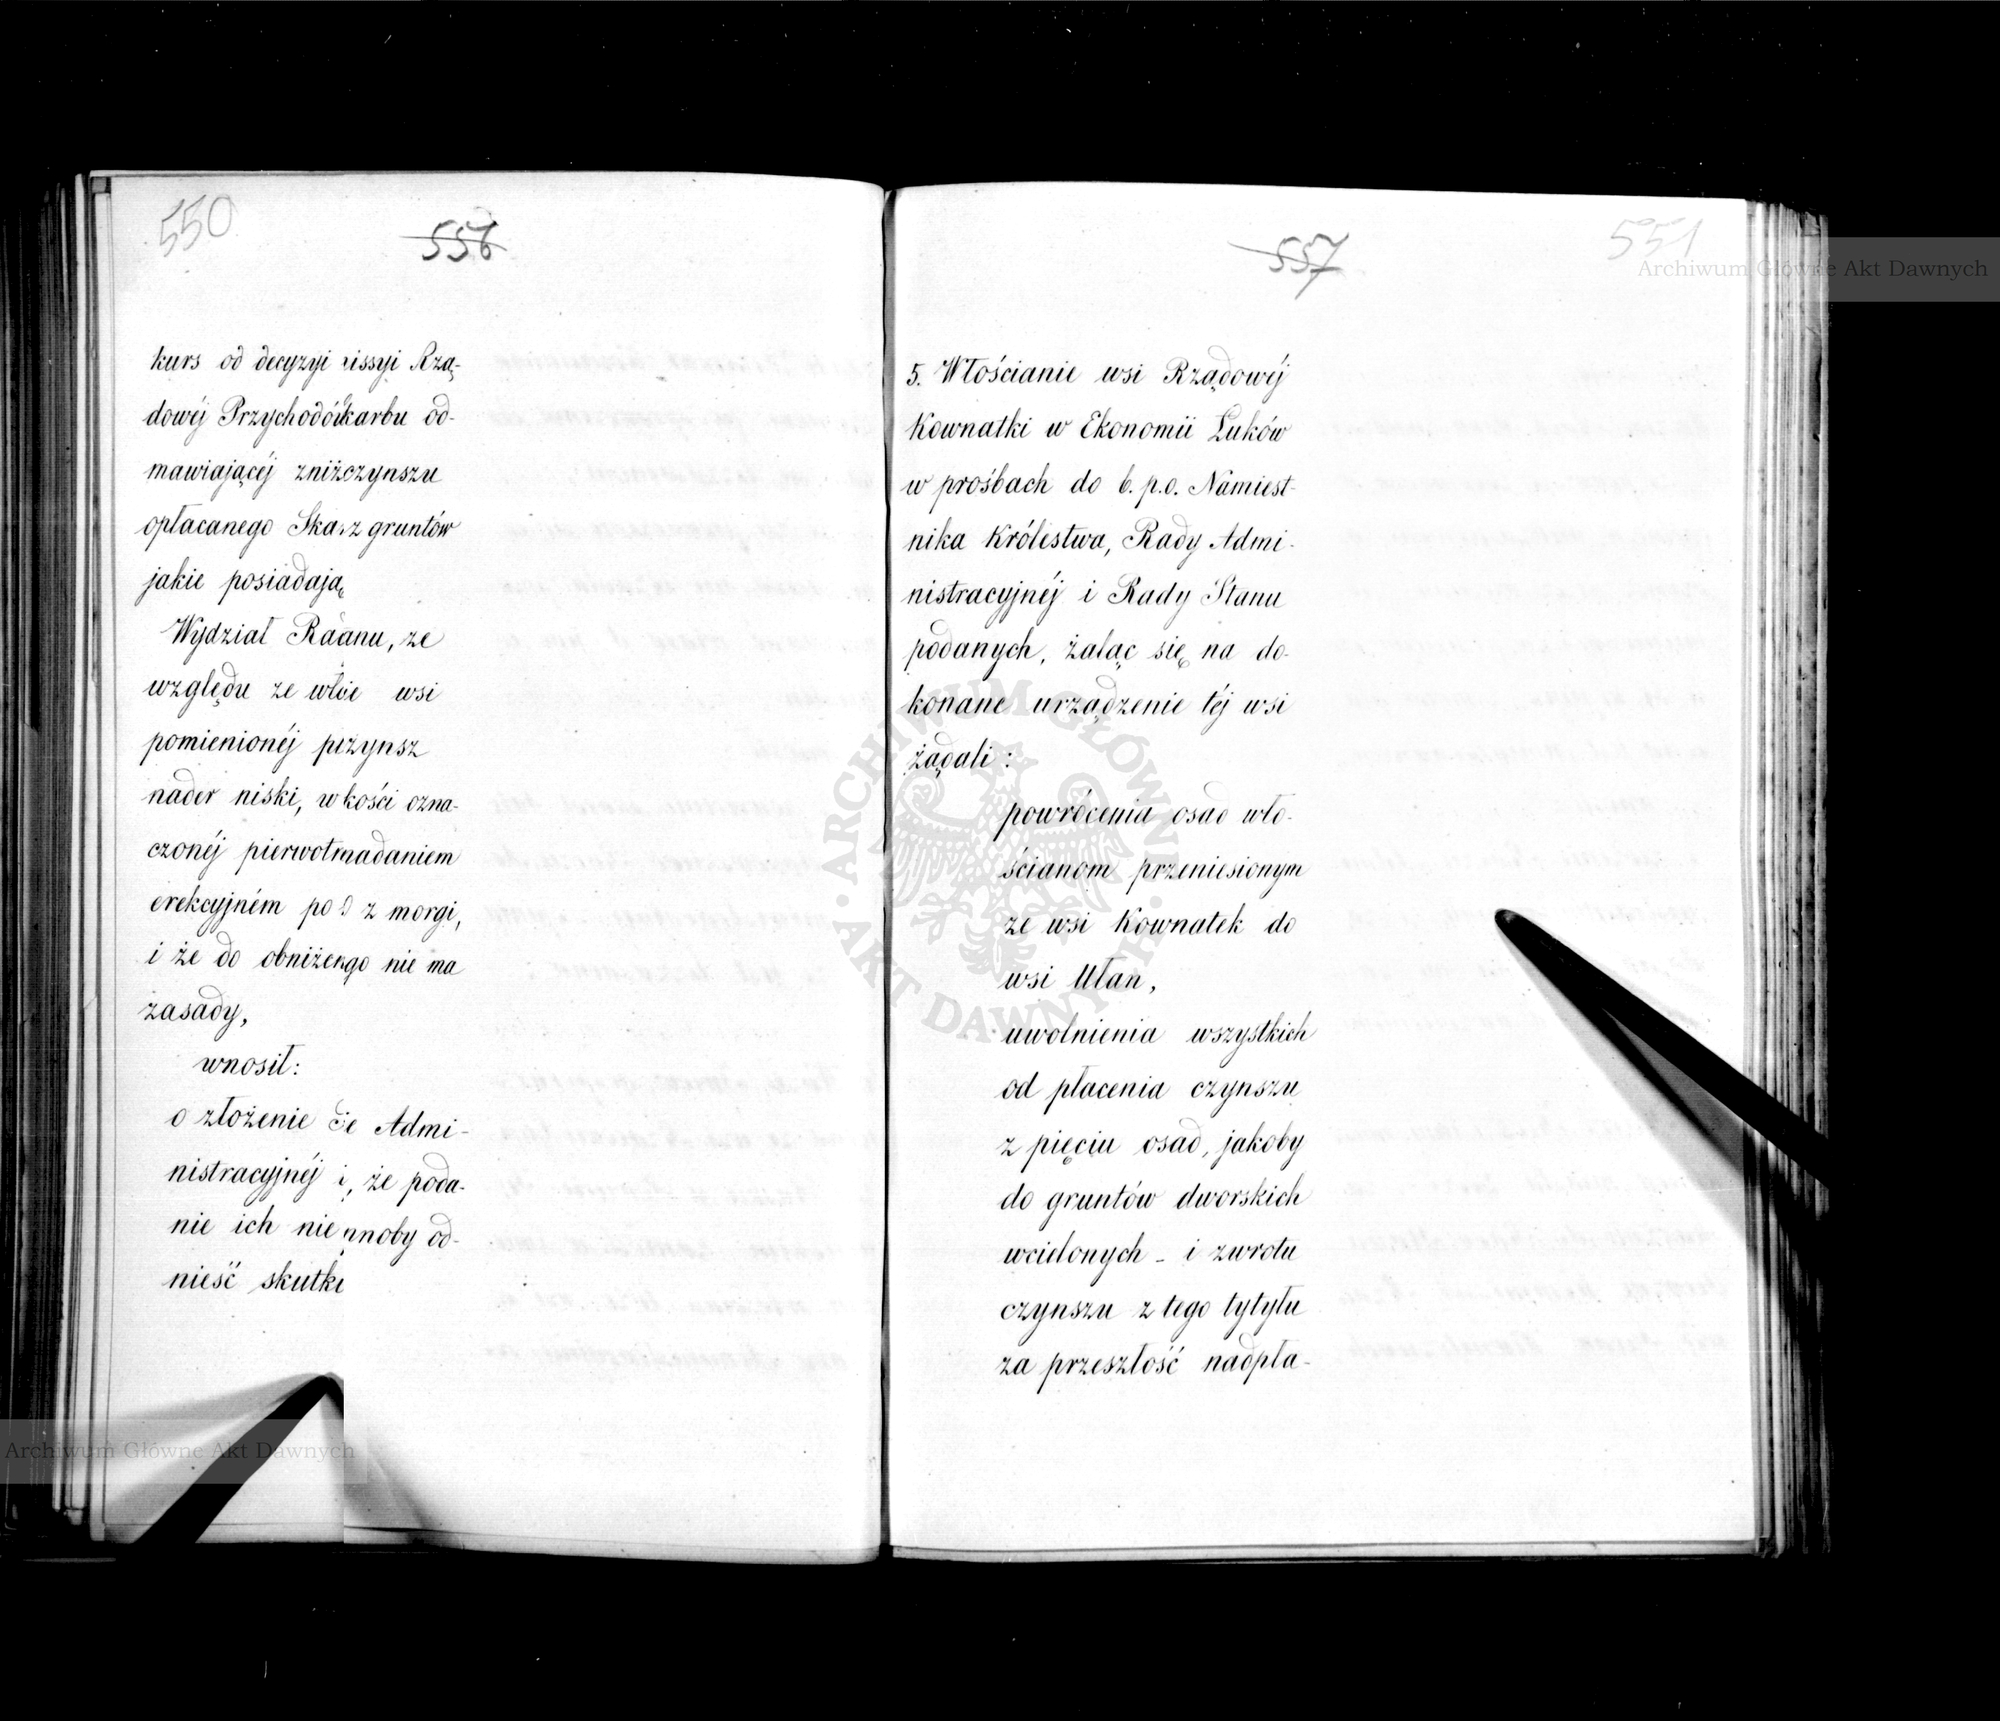 550
556
kurs od decyzyi issyi Rzą-
dowéj Przychodó karbu od-
mawiającéj zniż czynszu
opłacanego Ska z gruntów
jakie posiadają
Wydział Ra anu, ze
względu ze wło ie wsi
pomienionéj p zynsz
nader niski, w kości ozna-
czonéj pierwotn nadaniem
erekcyjném po z morgi,
i że do obniżen go nie ma
zasady,
wnosił:
o złożenie ie Admi-
nistracyjnéj i, że poda-
nie ich nie nnoby od-
nieść skutk
551
557
5. Włościanie wsi Rządowéj
Kownatki w Ekonomii Łuków
w prośbach do b. p. o. Namiest-
nika Królestwa, Rady Admi-
nistracyjnéj i Rady Stanu
podanych, żaląc się na do-
konane urządzenie téj wsi
żądali:
powrócenia osad wło-
ścianom przeniesionym
ze wsi Kownatek do
wsi Ułan,
uwolnienia wszystkich
od płacenia czynszu
z pięciu osad, jakoby
do gruntów dworskich
wcielonych - i zwrotu
czynszu z tego tytułu
za przeszłość nadpła-
Archiwum Główne Akt Dawnych
Archiwum Główne Akt Dawnych
ARCHIWUM GŁÓWNE AKT DAWNYCH